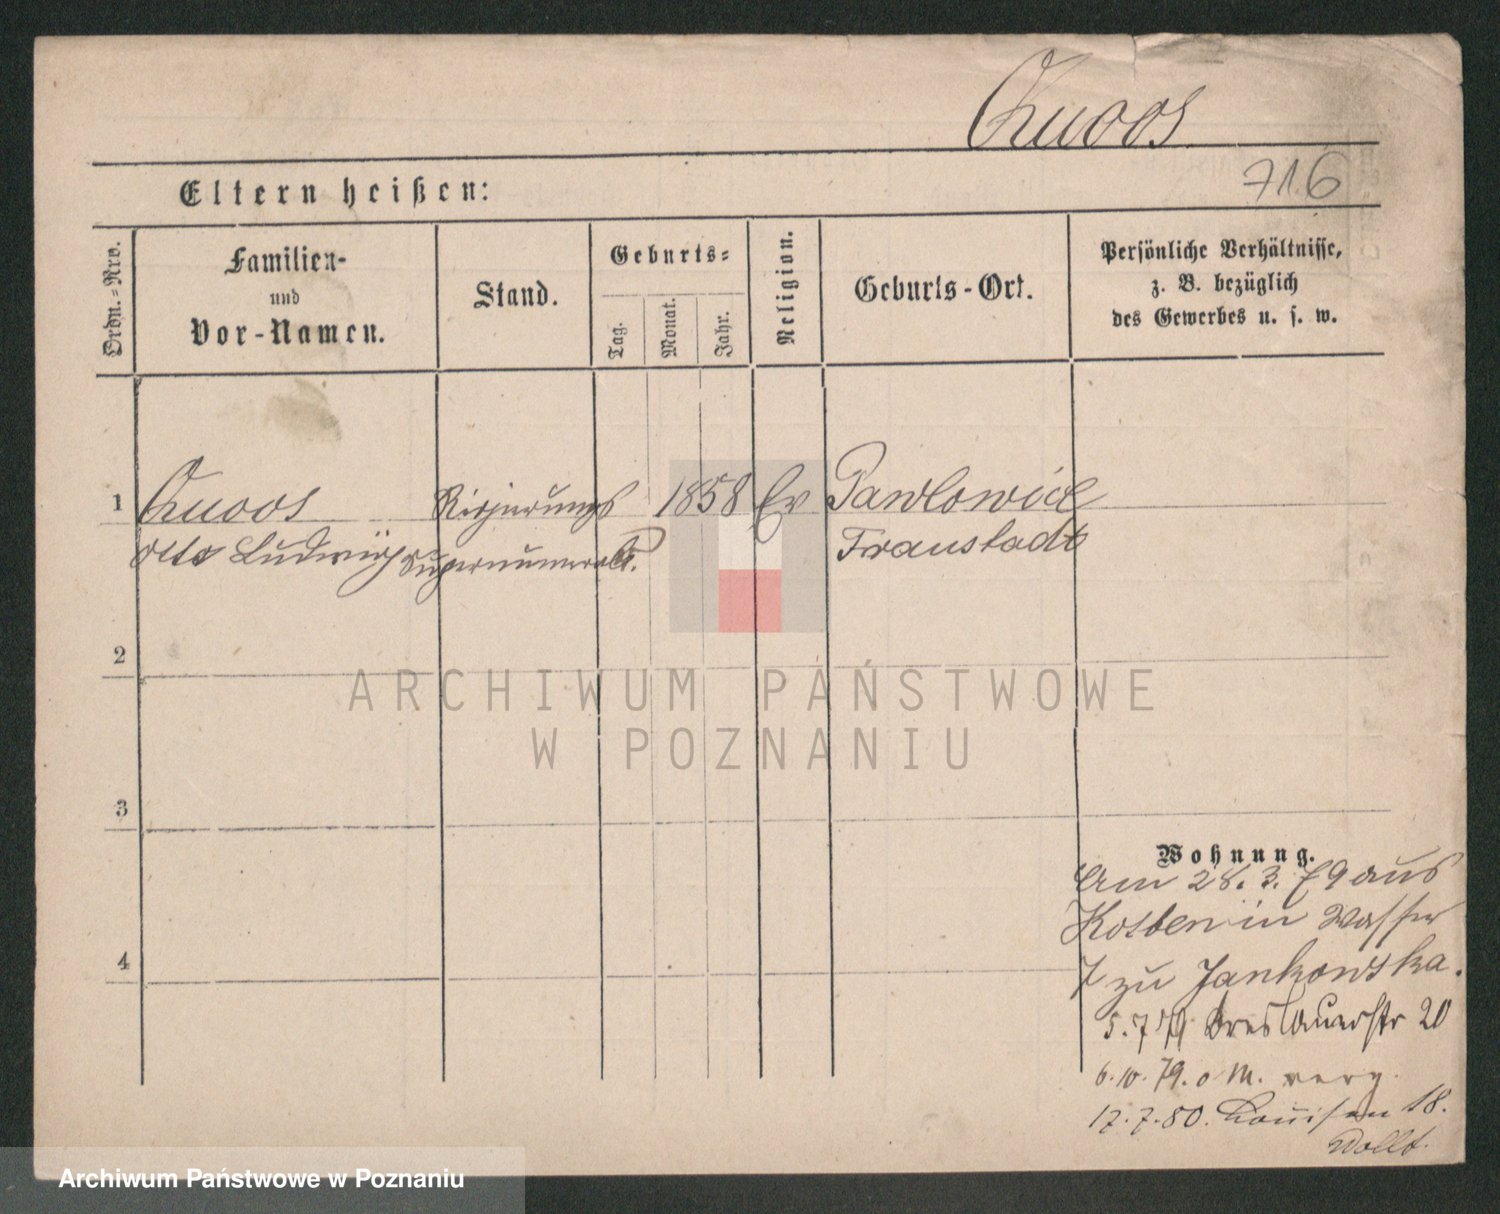 Quoos
716
Eltern heißen:
Ordn.-Nro.
Familien-
und
Vor-Namen.
Stand.
Geburts-
Tag.
Monat.
Jahr.
Religion.
Geburts-Ort.
Persönliche Verhältnisse,
z. B. bezüglich
des Gewerbes u. s. w.
1 Quoos Regierungs 1858 Ev Pawlowice
Otto Ludwig Supernumerar. Fraustadt
2
ARCHIWUM PAŃSTWOWE
W POZNANIU
3
Wohnung.
Am 28. 3. 79 aus
Kosten in Wasser
7 zu Jankowska.
4
5.7.79 Breslauerstr 20
6.10.79. o M. verz.
17.7.80. Louisen 18.
Archiwum Państwowe w Poznaniu